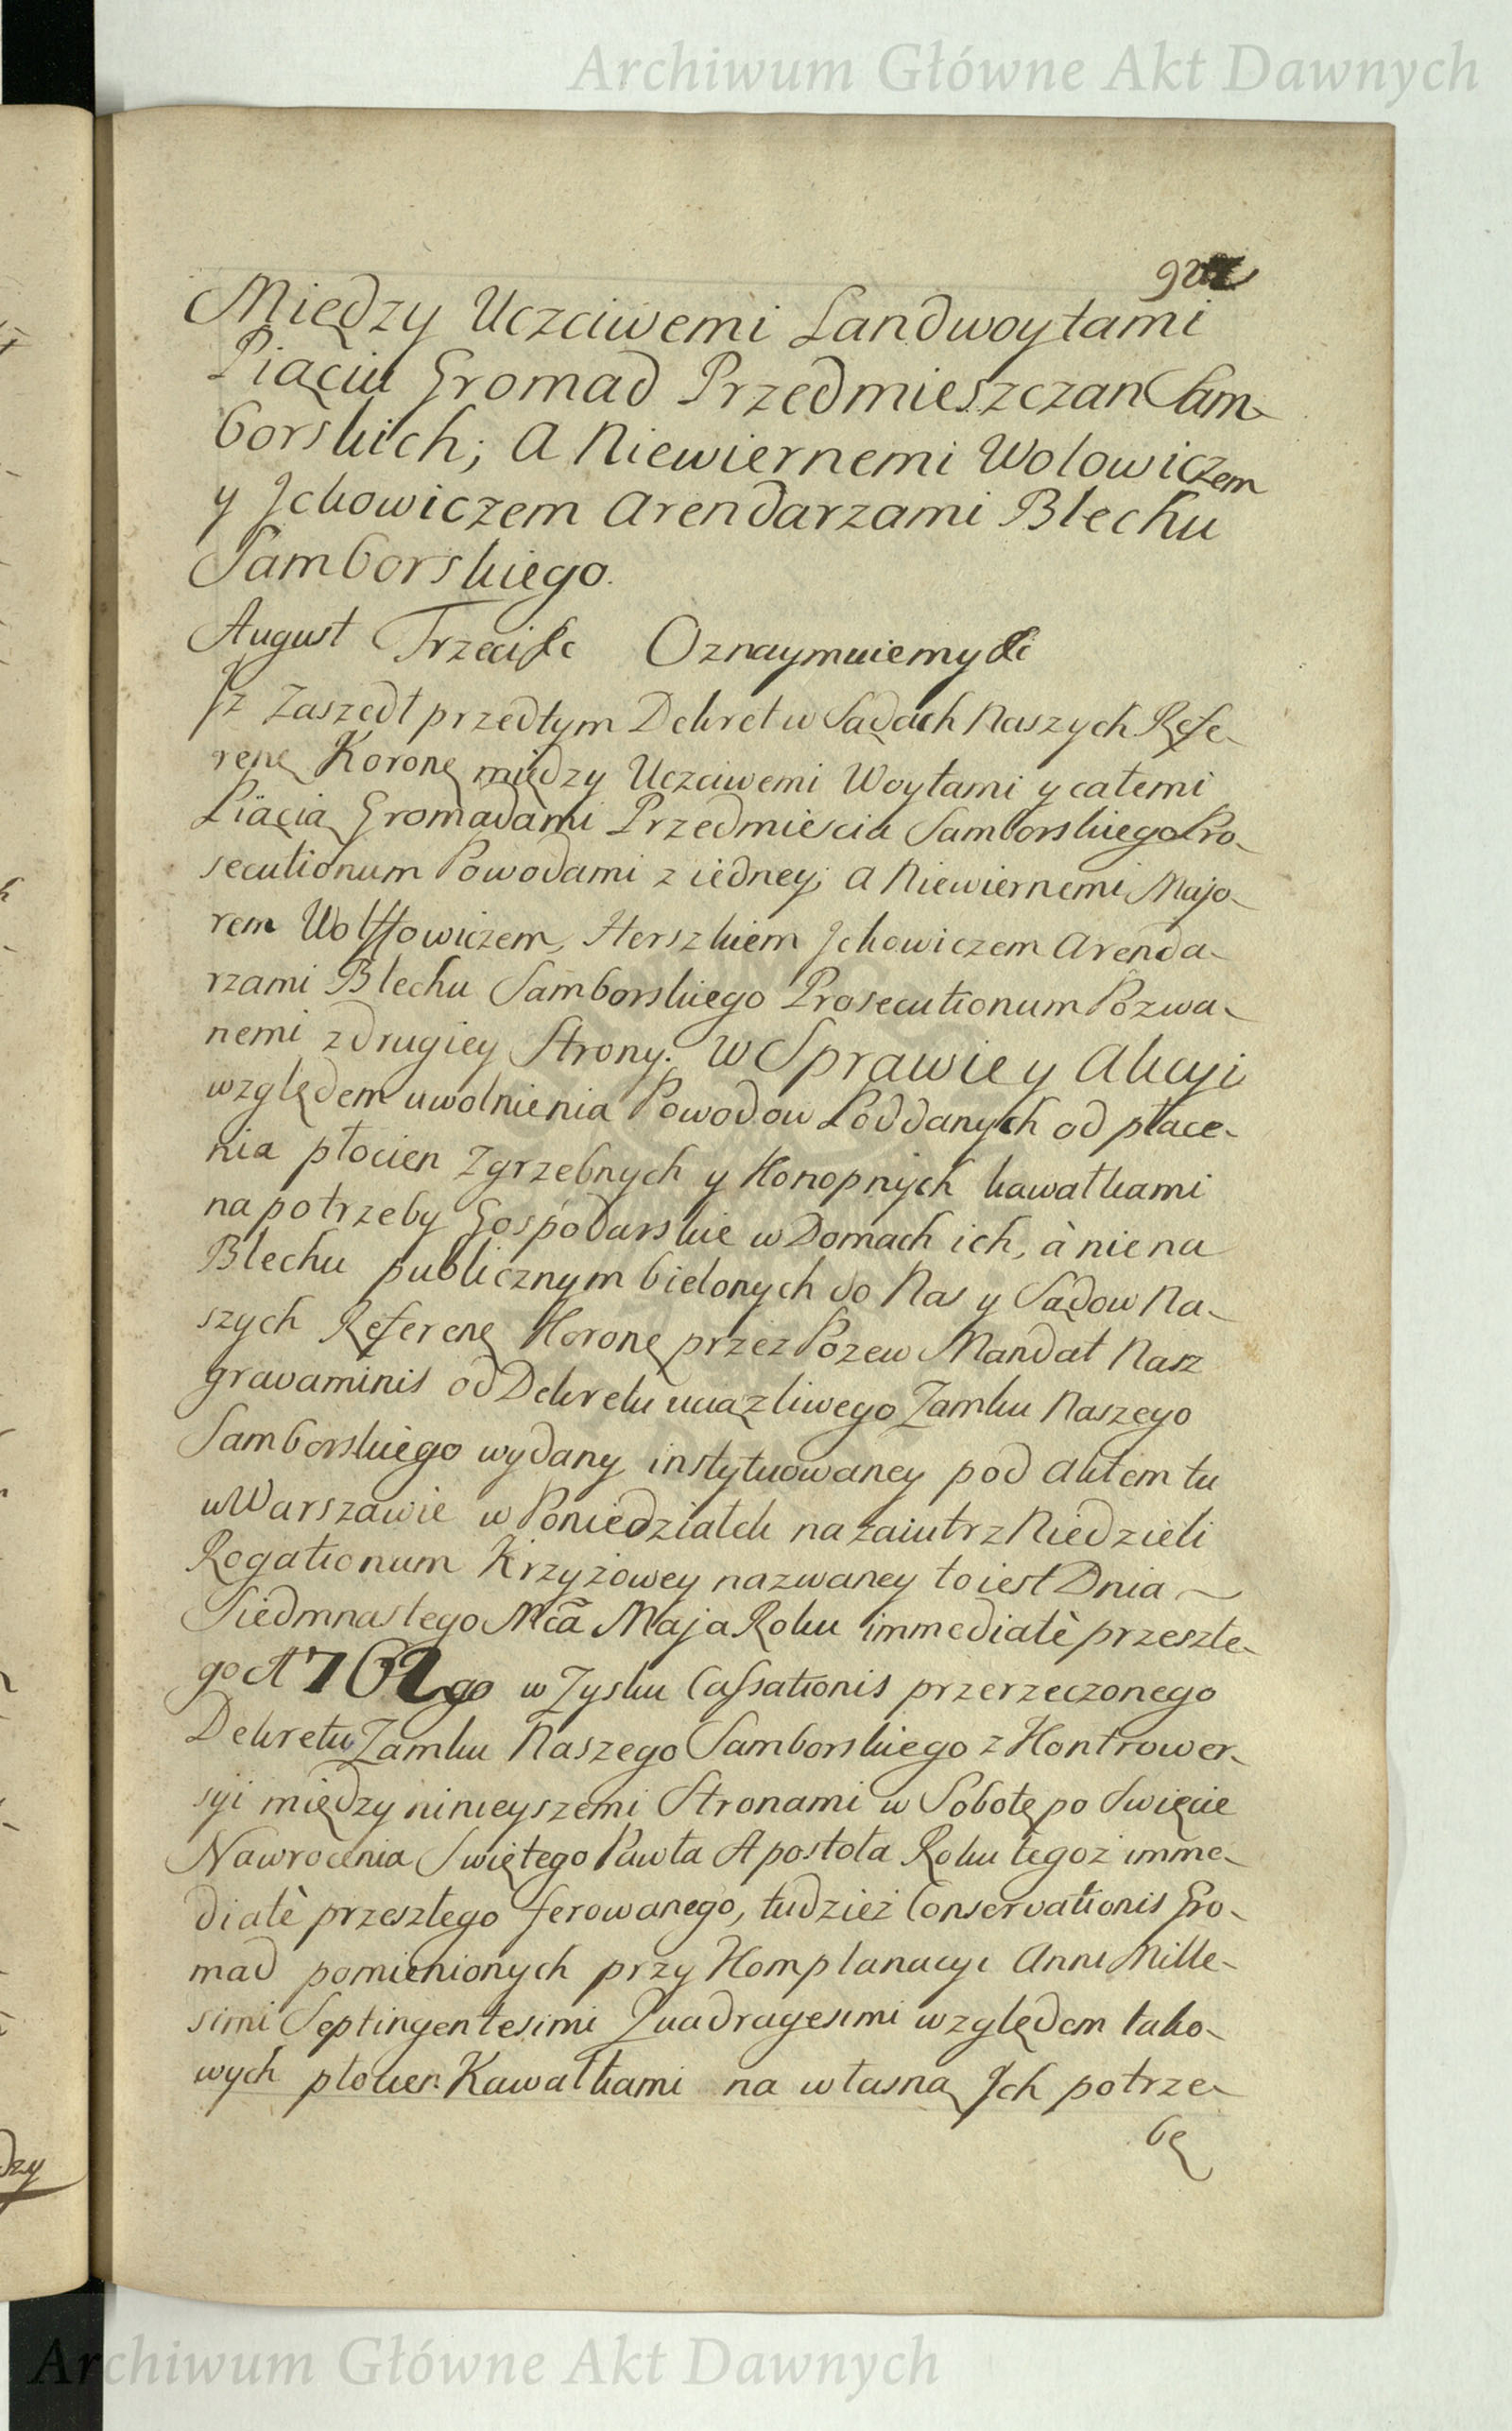 Archiwum Główne Akt Dawnych
Między Uczciwemi Landwoytami
Piąciu Gromad Przedmieszczan Sam-
borskich; A Niewiernemi Wolowiczem
y Jckowiczem Arendarzami Blechu
Samborskiego.
August Trzeci &c Oznaymuiemy &c
Jż Zaszedł przedtym Dekret w Sądach Naszych Refe-
renę Koronę między Uczciwemi Woytami y całemi
Piącią Gromadami Przedmieścia Samborskiego Pro-
secutionum Powodami z iedney; A Niewiernemi Majo-
rem Wolffowiczem, Herszkiem Jckowiczem Arenda-
rzami Blechu Samborskiego Prosecutionum Pozwa-
nemi z drugiey Strony. W Sprawie y Akcyi
względem uwolnienia Powodow Poddanych od płace-
nia płocien Zgrzebnych y Konopnych kawałkami
na potrzeby Gospodarskie w Domach ich, à nie na
Blechu publicznym bielonych do Nas y Sądow Na-
szych Referenę Koronę przez Pozew Mandat Nasz
gravaminis od Dekretu uciążliwego Zamku Naszego
Samborskiego wydany instytuowaney pod Aktem tu
w Warszawie w Poniedziałek nazaiutrz Niedzieli
Rogationum Krzyżowey nazwaney to iest Dnia
Siedmnastego Mca Maja Roku immediatè przeszłe-
go 1762go w Zysku Cassationis przerzeczonego
Dekretu Zamku Naszego Samborskiego z Kontrower-
syi między ninieyszemi Stronami w Sobotę po Swięcie
Nawrocenia Swiętego Pawła Apostoła Roku tegoż imme-
diatè przeszłego ferowanego, tudzież Conservationis Gro-
mad pomienionych przy Komplanacyi Anni Mille-
simi Septingentesimi Quadragesimi względem tako-
wych płocien Kawałkami na własną Jch potrze-
bę
dzy
Archiwum Główne Akt Dawnych